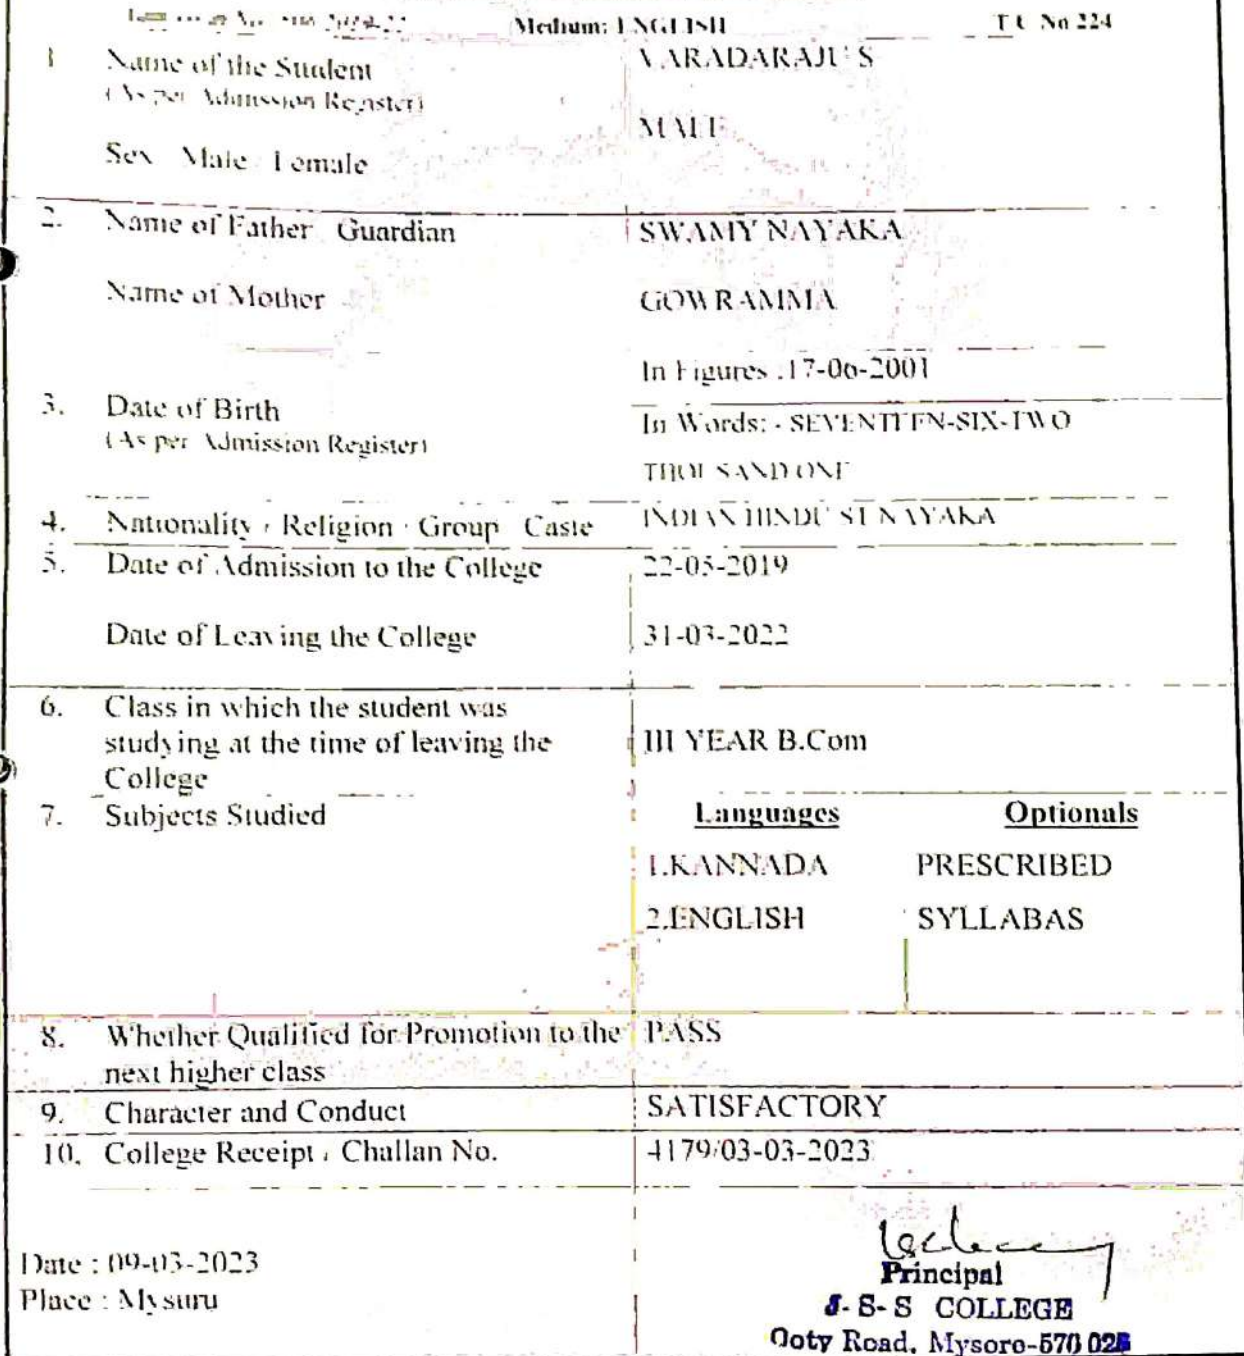 Medium: ENGLISH T C No 224
1 Name of the Student VARADARAJU S
(As per Admission Register)
MALE
Sex Male Female
2. Name of Father Guardian SWAMY NAYAKA
Name of Mother GOWRAMMA
In Figures :17-06-2001
3. Date of Birth
(As per Admission Register)
In Words: - SEVENTEEN-SIX-TWO
THOUSAND ONE
4. Nationality / Religion Group Caste INDIAN HINDU ST NAYAKA
5. Date of Admission to the College 22-05-2019
Date of Leaving the College 31-03-2022
6. Class in which the student was
studying at the time of leaving the III YEAR B.Com
College
7. Subjects Studied Languages Optionals
1.KANNADA PRESCRIBED
2.ENGLISH SYLLABAS
8. Whether Qualified for Promotion to the PASS
next higher class
9. Character and Conduct SATISFACTORY
10. College Receipt / Challan No. 4179/03-03-2023
Date : 09-03-2023
Place : Mysuru
Principal
J-S-S COLLEGE
Ooty Road, Mysore-570 025